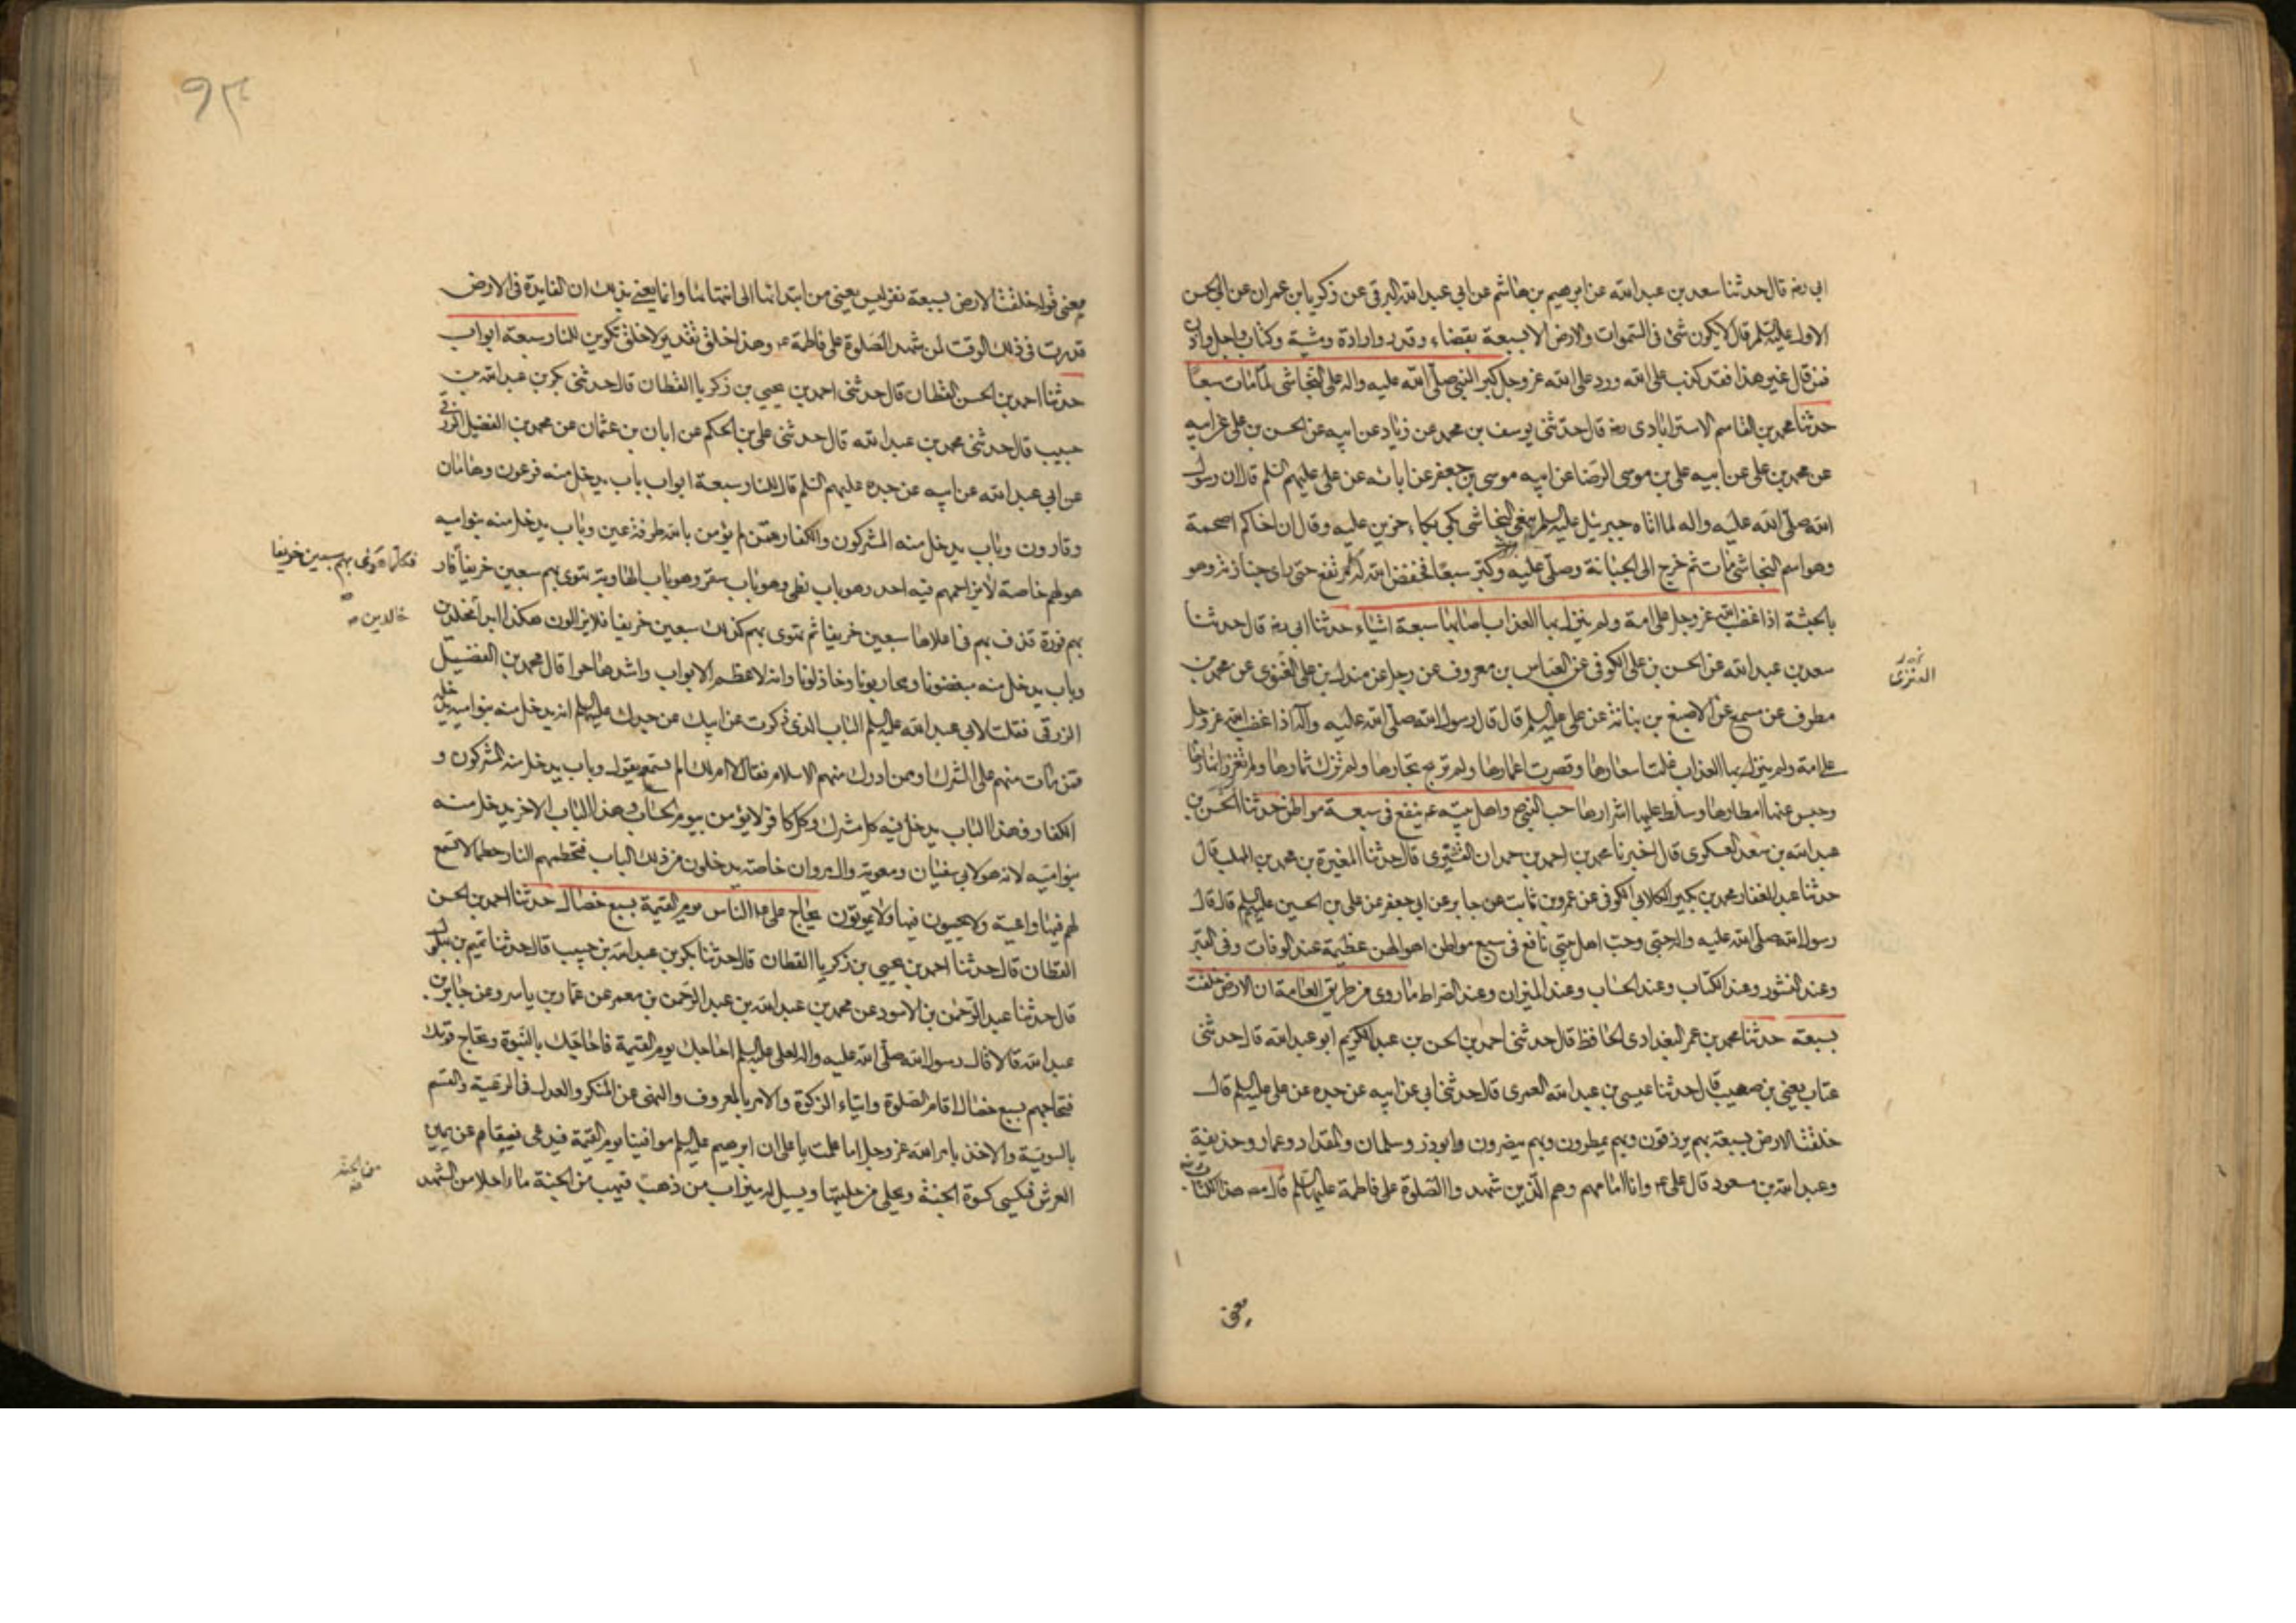 ابى رضه قال حدثنا سعد بن عبد الله عن ابرهيم بن هاشم عن ابى عبد الله البرقى عن زكريا بن عمران عن ابى الحسن
الاول عليه السلم قال لا يكون شئ فى السموات والارض الا بسبعة بقضاء وقدر وارادة ومشية وكتاب واجل واذن
فمن قال غير هذا فقد كذب على الله ورد على الله عز وجل كبر النبى صلى الله عليه واله على النجاشى لما مات سبعا
حدثنا محمد بن القاسم الاسترابادى رضه قال حدثنى يوسف بن محمد عن زياد عن ابيه عن الحسن بن على عن ابيه
عن محمد بن على عن ابيه على بن موسى الرضا عن ابيه موسى بن جعفر عن ابائه عن على عليهم السلم قال ان رسول
الله صلى الله عليه واله لما اتاه جبرئيل عليه السلم بنعى النجاشى بكى بكاء حزين عليه وقال ان اخاكم اصحمة
وهو اسم النجاشى مات ثم خرج الى الجبانة وصلى عليه وكبر سبعا فخفض الله له كل مرتفع حتى راى جنازته وهو
بالحبشة اذا غضب الله عز وجل على امة ولم ينزل بها العذاب اصابها سبعة اشياء حدثنا ابى رضه قال حدثنا
سعد بن عبد الله عن الحسن بن على الكوفى عن العباس بن معروف عن رجل عن مندل بن على الغنوى عن محمد بن
مطرف عن مسمع عن الاصبغ بن نباتة عن على عليه السلم قال قال رسول الله صلى الله عليه واله اذا غضب الله عز وجل
على امة ولم ينزل بها العذاب غلت اسعارها وقصرت اعمارها ولم تربح تجارها ولم تزك ثمارها ولم تغزر انهارها
وحبس عنها امطارها وسلط عليها اشرارها حب النبى ص واهل بيته عم ينفع فى سبعة مواطن حدثنا الحسن بن
عبد الله بن سعد العسكرى قال اخبرنا محمد بن احمد بن حمدان القشيرى قال حدثنا المغيرة بن محمد بن المهلب قال
حدثنا عبد الغفار محمد بن بكير الكلابى الكوفى عن عمرو بن ثابت عن جابر عن ابى جعفر عن على بن الحسين عليهم السلم قال قال
رسول الله صلى الله عليه واله حبى وحب اهل بيتى نافع فى سبع مواطن اهوالهن عظيمة عند الوفات وفى القبر
وعند النشور وعند الكتاب وعند الحساب وعند الميزان وعند الصراط ما روى من طريق العامة ان الارض خلقت
بسبعة حدثنا محمد بن عمر البغدادى الحافظ قال حدثنى احمد بن الحسن بن عبد الكريم ابو عبد الله قال حدثنى
عتاب يعنى بن صهيب قال حدثنا عيسى بن عبد الله العمرى قال حدثنى ابى عن ابيه عن جده عن على عليه السلم قال
خلقت الارض بسبعة بهم يرزقون وبهم يمطرون وبهم ينصرون وابوذر وسلمان والمقداد وعمار وحذيفة
وعبد الله بن مسعود قال على عم وانا امامهم وهم الذين شهدوا الصلوة على فاطمة عليها السلم قال مصنف هذا الكتاب
معنى
معنى قوله خلقت الارض بسبعة نفر ليس يعنى من ابتدائها الى انتهائها وانما يعنى بذلك ان الفايدة فى الارض
قدرت فى ذلك الوقت لمن شهد الصلوة على فاطمة عم وهذا خلق تقدير لا خلق تكوين للنار سبعة ابواب
حدثنا احمد بن الحسن القطان قال حدثنى احمد بن يحيى بن زكريا القطان قال حدثنى بكر بن عبد الله بن
حبيب قال حدثنى محمد بن عبد الله قال حدثنى على بن الحكم عن ابان بن عثمان عن محمد بن الفضيل الزرقى
عن ابى عبد الله عن ابيه عن جده عليهم السلم قال للنار سبعة ابواب باب يدخل منه فرعون وهامان
وقارون وباب يدخل منه المشركون والكفار ممن لم يؤمن بالله طرفة عين وباب يدخل منه بنو اميه
هو لهم خاصة لا يزاحمهم فيه احد وهو باب لظى وهو باب سقر وهو باب الهاوية تهوى بهم سبعين خريفا فار
بهم فورة قذف بهم فى اعلاها سبعين خريفا ثم تهوى بهم كذلك سبعين خريفا فلا يزالون هكذا ابدا مخلدين
وباب يدخل منه مبغضونا ومحاربونا وخاذلونا وانه لاعظم الابواب واشدها حرا قال محمد بن الفضيل
الزرقى فقلت لابى عبد الله عليه السلم الباب الذى ذكرت عن ابيك عن جدك عليهم السلم انه يدخل منه بنو اميه يدخله
من مات منهم على الشرك او ممن ادرك منهم الاسلام فقال لا ام لك الم تسمعه يقول وباب يدخل منه المشركون و
الكفار فهذا الباب يدخل فيه كل مشرك وكل كافر لا يؤمن بيوم الحساب وهذا الباب الاخر يدخل منه
بنو اميه لانه هو لابى سفيان ومعوية وال مروان خاصة يدخلون من ذلك الباب فتحطمهم النار حطما لا تسمع
لهم فيها واعية ولا يحيون فيها ولا يموتون يحاج على عم الناس يوم القيمة بسبع خصال حدثنا احمد بن الحسن
القطان قال حدثنا احمد بن يحيى بن زكريا القطان قال حدثنا بكر بن عبد الله بن حبيب قال حدثنا تميم بن بهلول
قال حدثنا عبد الرحمن بن الاسود عن محمد بن عبيد الله بن عبد الرحمن بن معمر عن عمار بن ياسر وعن جابر بن
عبد الله قالا قال رسول الله صلى الله عليه واله لعلى عليه السلم احاجك يوم القيمة فاحاجك بالنبوة وتحاج قومك
فتحاجهم بسبع خصال اقام الصلوة وايتاء الزكوة والامر بالمعروف والنهى عن المنكر والعدل فى الرعية والقسم
بالسوية والاخذ بامر الله عز وجل اما علمت يا على ان ابرهيم عليه السلم موافينا يوم القيمة فيدعى فيقام عن يمين
العرش فيكسى كسوة الجنة ويحلى من حليتها ويسيل له ميزاب من ذهب فيهب من الجنة ماء احلا من الشهد
فكلما هوى بهم سبعين خريفا
خالدين
من الجنة